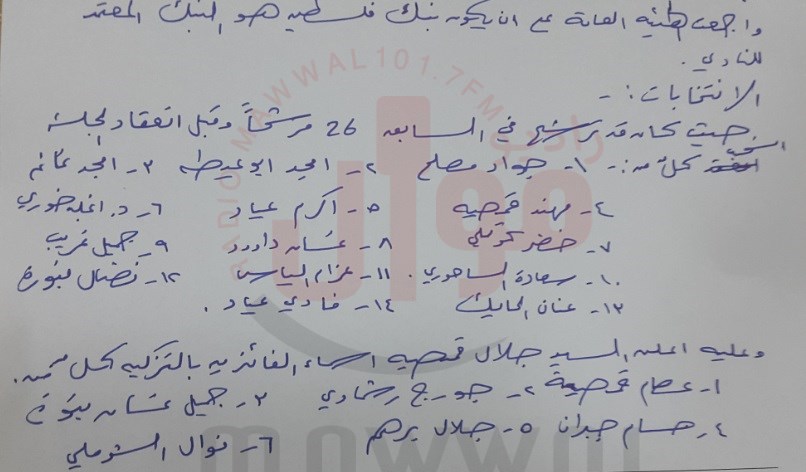 واجمعت الهيئة العامة على ان يكون بنك فلسطين هو البنك المعتمد
للنادي.
الانتخابات :-
حيث كان قد ترشح في السابق 26 مرشحاً وقبل انعقاد الجلسة
انسحب كل من :- ١- جواد مصلح ٢- امجد ابو عيطة ٣- امجد غانم
٤- مهند قمصية ٥- اكرم عياد ٦- د. خوري
٧- خضر ٨- غسان داوود ٩- جميل غريب
١٠- سعادة الساحوري. ١١- عزام الياس ١٢- نضال بنورة
١٣- عنان الحايك ١٤- فادي عياد.
وعليه اعلن السيد جلال قمصية اسماء الفائزين بالتزكية لكل من.
١- عصام قمصية ٢- جورج رشماوي ٣- جميل غسان بنورة
٤- حسام جبران ٥- جلال برهم ٦- نوال الشوملي
RADIO MAWWAL 101.7FM
راديو
موال
mawwal